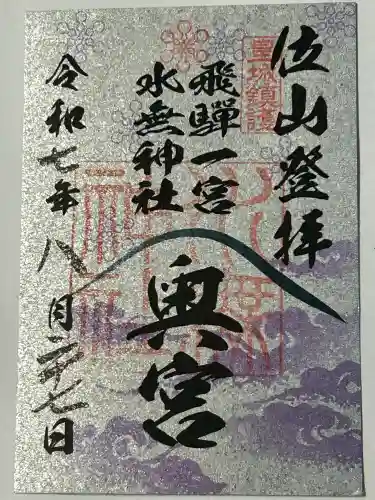 位山登拝
飛驒一宮
水無神社
奥宮
令和七年八月二十七日